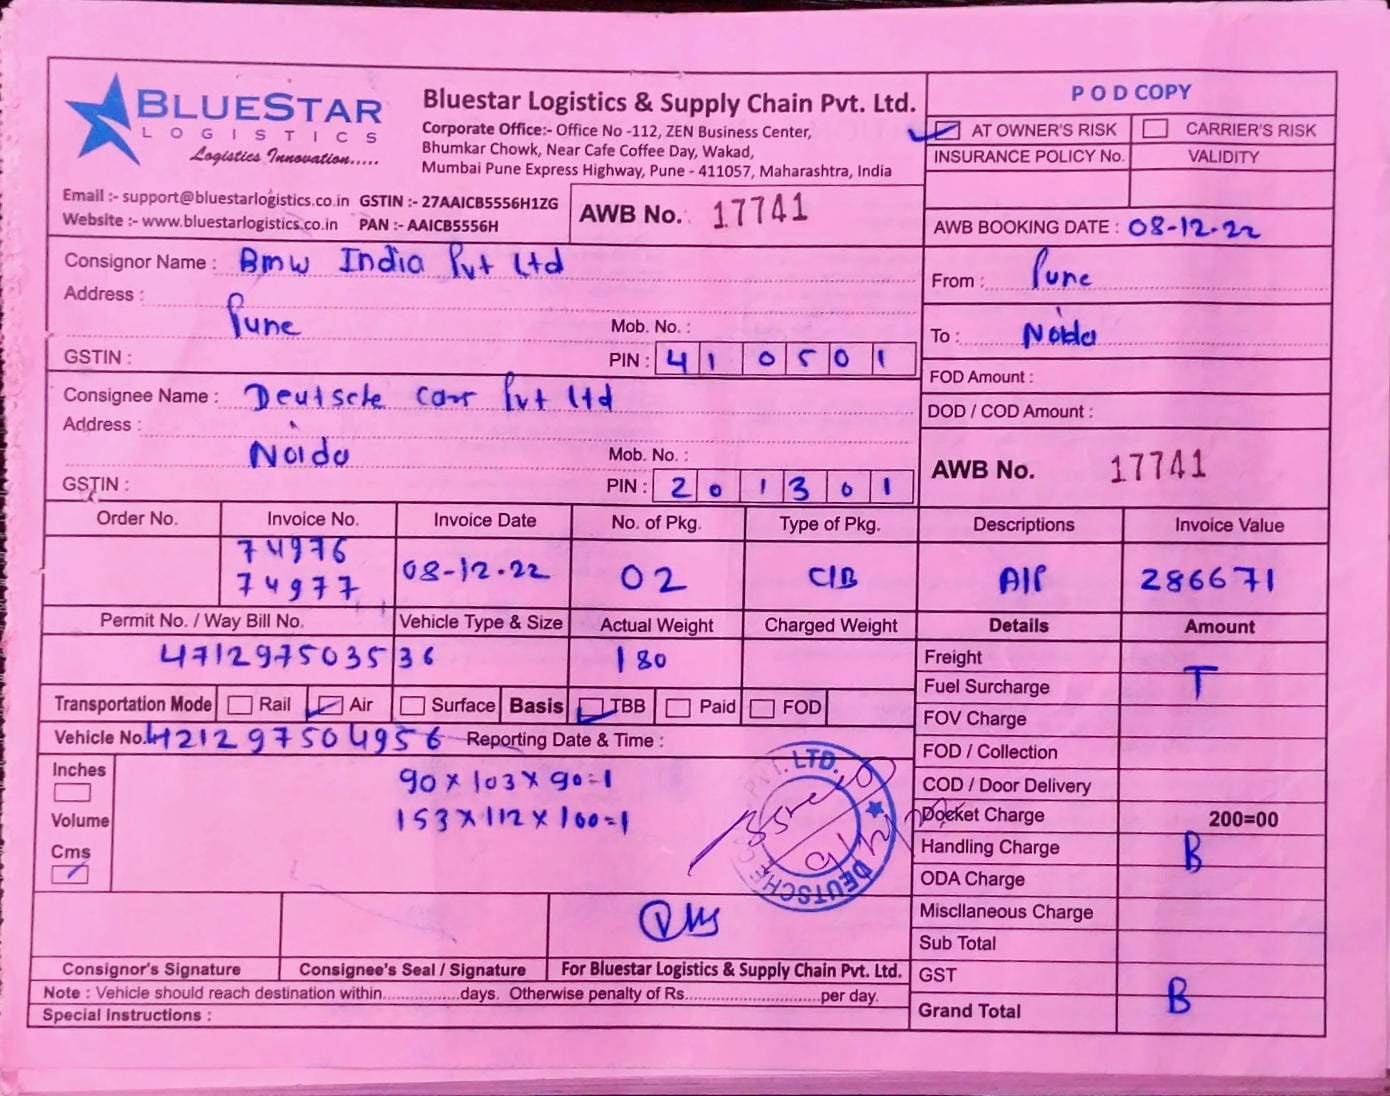 BLUESTAR
LOGISTICS
Logistics Innovation.....
Bluestar Logistics & Supply Chain Pvt. Ltd.
Corporate Office:- Office No -112, ZEN Business Center,
Bhumkar Chowk, Near Cafe Coffee Day, Wakad,
Mumbai Pune Express Highway, Pune - 411057, Maharashtra, India
Email :- support@bluestarlogistics.co.in GSTIN :- 27AAICB5556H1ZG
Website :- www.bluestarlogistics.co.in PAN :- AAICB5556H
AWB No. 17741
POD COPY
AT OWNER'S RISK CARRIER'S RISK
INSURANCE POLICY No. VALIDITY
AWB BOOKING DATE : 08-12-22
Consignor Name : Bmw India Pvt Ltd
Address :
Pune Mob. No. :
GSTIN : PIN : 410501
From : Pune
To : Noida
FOD Amount :
DOD / COD Amount :
Consignee Name : Deutsche Carr Pvt Ltd
Address :
Noida Mob. No. :
GSTIN : PIN : 201301
AWB No. 17741
Order No. Invoice No. Invoice Date No. of Pkg. Type of Pkg. Descriptions Invoice Value
74976
74977 08-12-22 02 C/B A/P 286671
Permit No. / Way Bill No. Vehicle Type & Size Actual Weight Charged Weight Details Amount
471297503536 180
Transportation Mode Rail Air Surface Basis TBB Paid FOD
Vehicle No. 421297504956 Reporting Date & Time :
Inches
Volume
Cms
90 x 103 x 90=1
153 x 112 x 100=1
LTD.
DEUTSCHE
Freight
Fuel Surcharge T
FOV Charge
FOD / Collection
COD / Door Delivery
Docket Charge 200=00
Handling Charge B
ODA Charge
Miscllaneous Charge
Sub Total
GST
Grand Total B
Consignor's Signature Consignee's Seal / Signature For Bluestar Logistics & Supply Chain Pvt. Ltd.
Note : Vehicle should reach destination within..................days. Otherwise penalty of Rs................................per day.
Special Instructions :